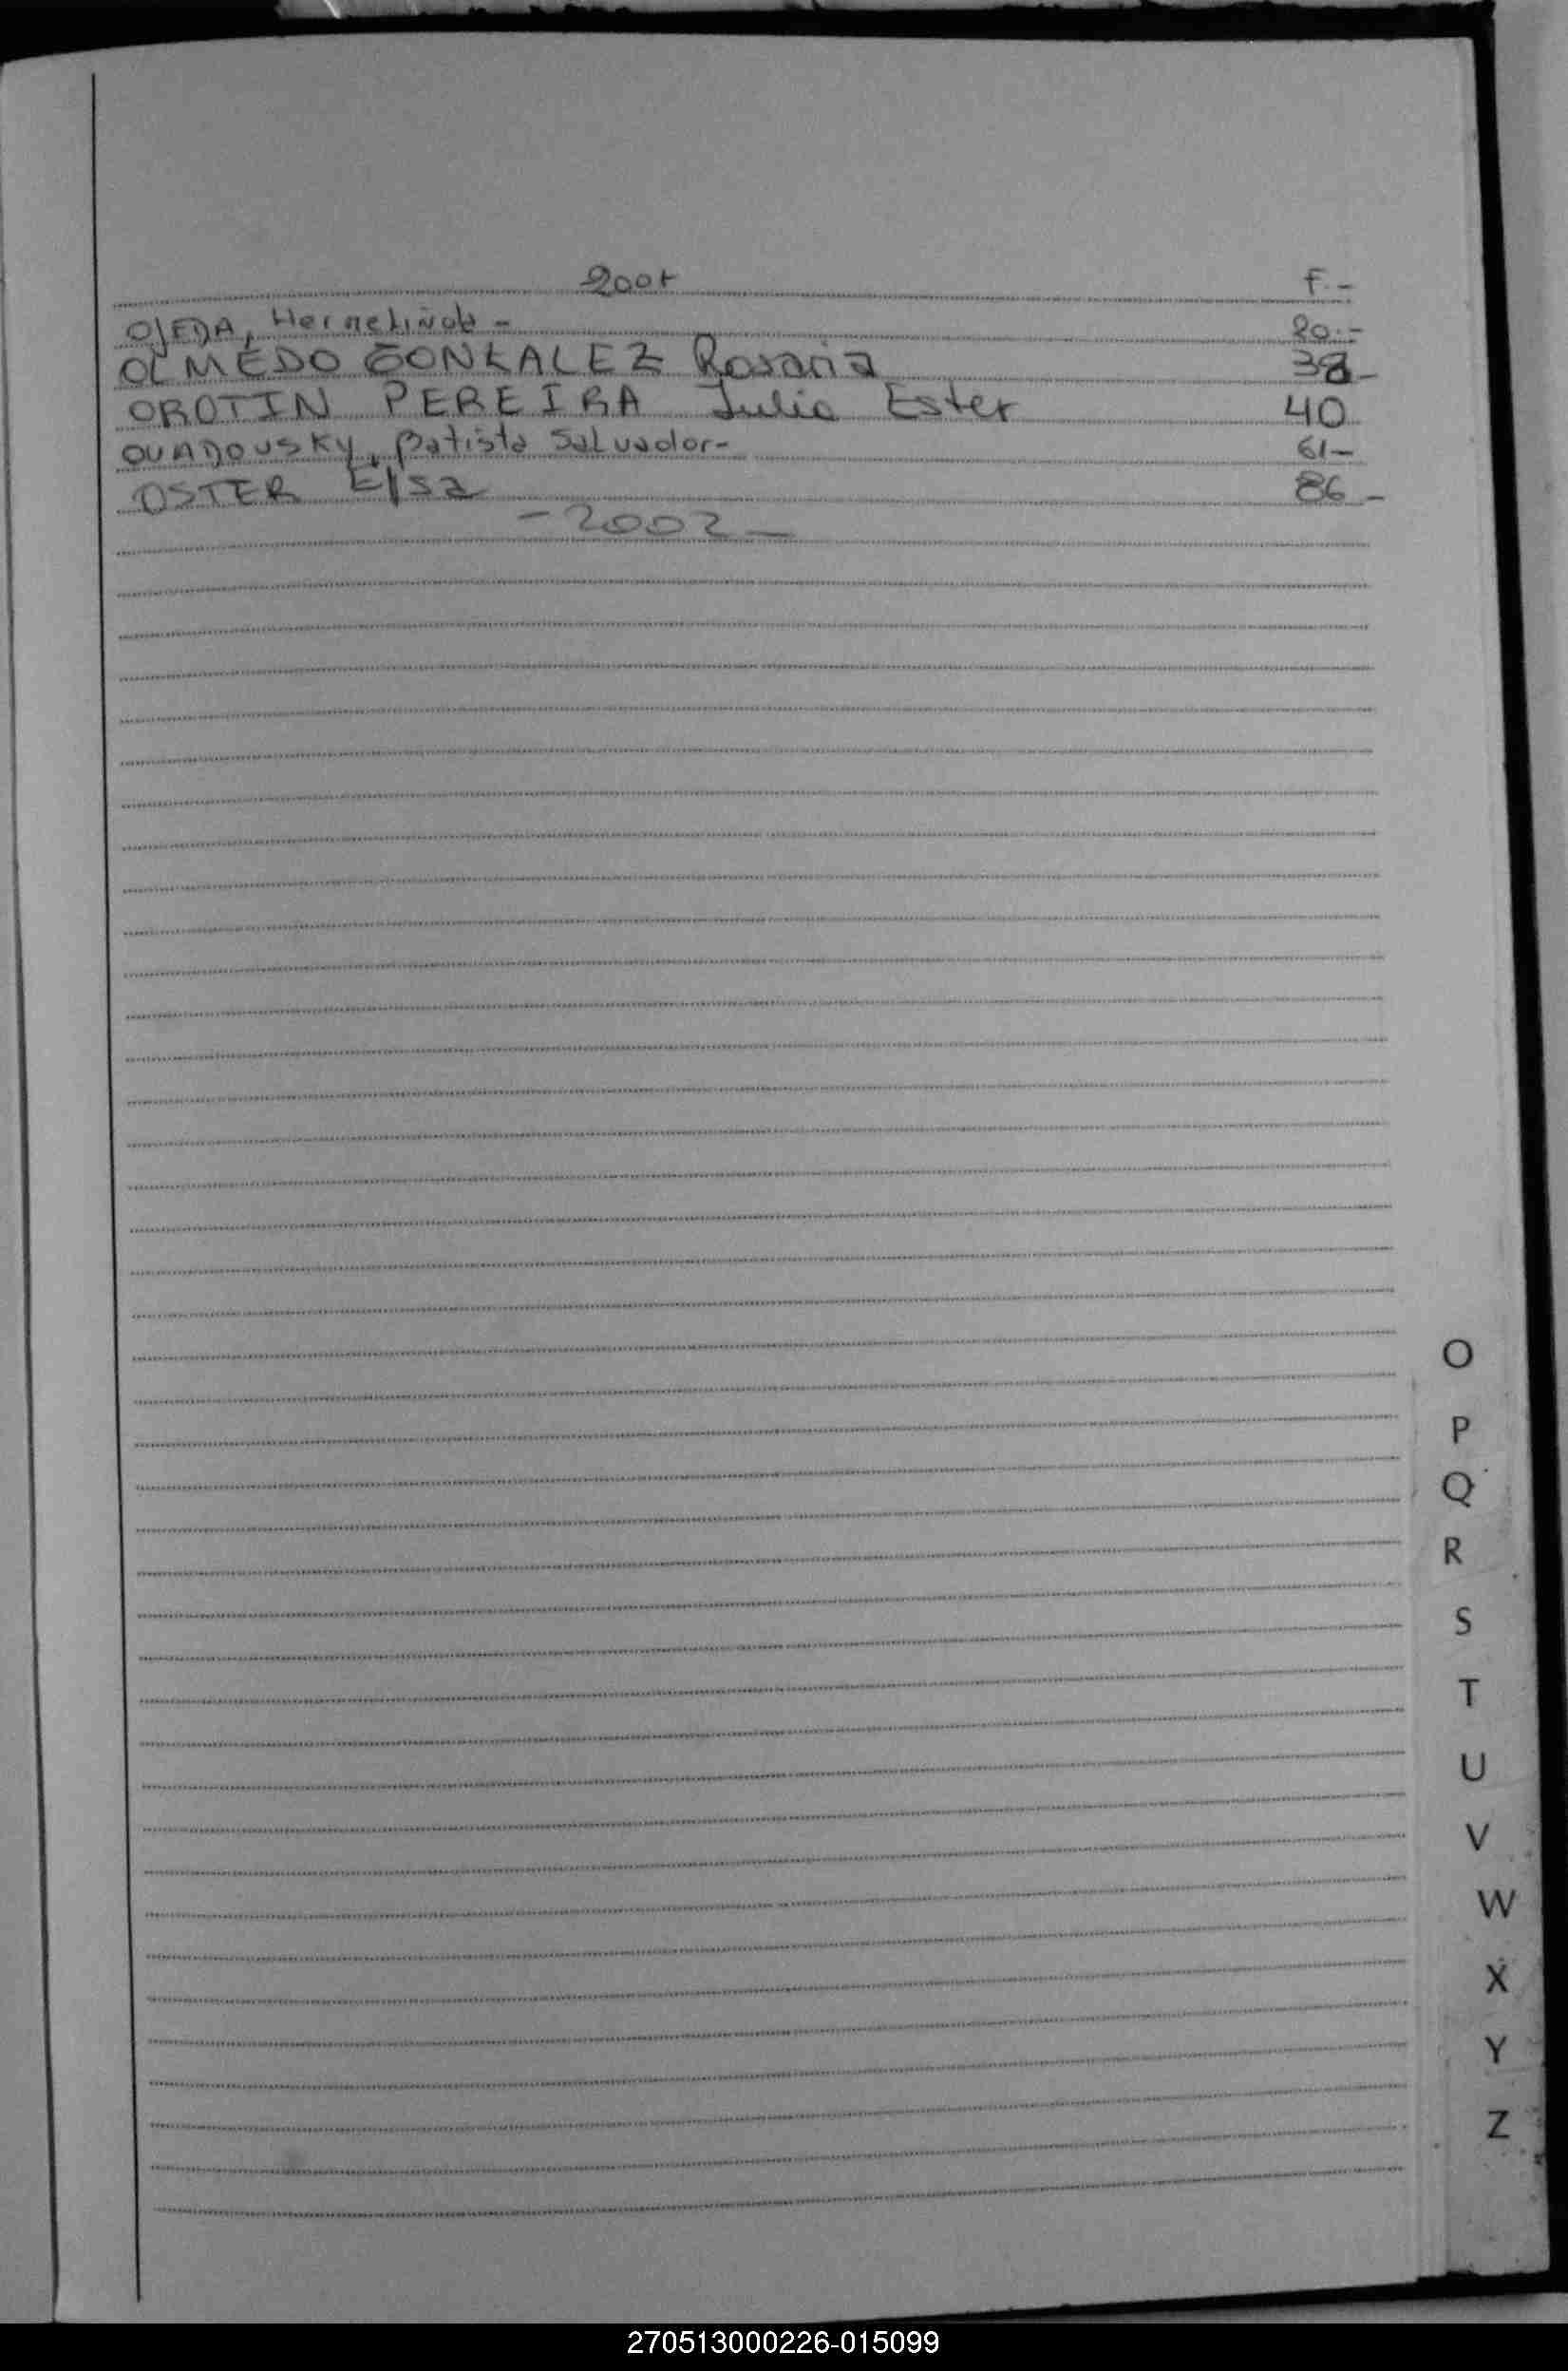 2001 F.-
OJEDA, Hermelinda - 20.-
OLMEDO GONZALEZ Rosaria 38-
OROTIN PEREIRA Julia Ester 40
OVADOVSKY, Batista Salvador- 61-
OSTER Elsa 86-
- 2002 -
O
P
Q
R
S
T
U
V
W
X
Y
Z
270513000226-015099